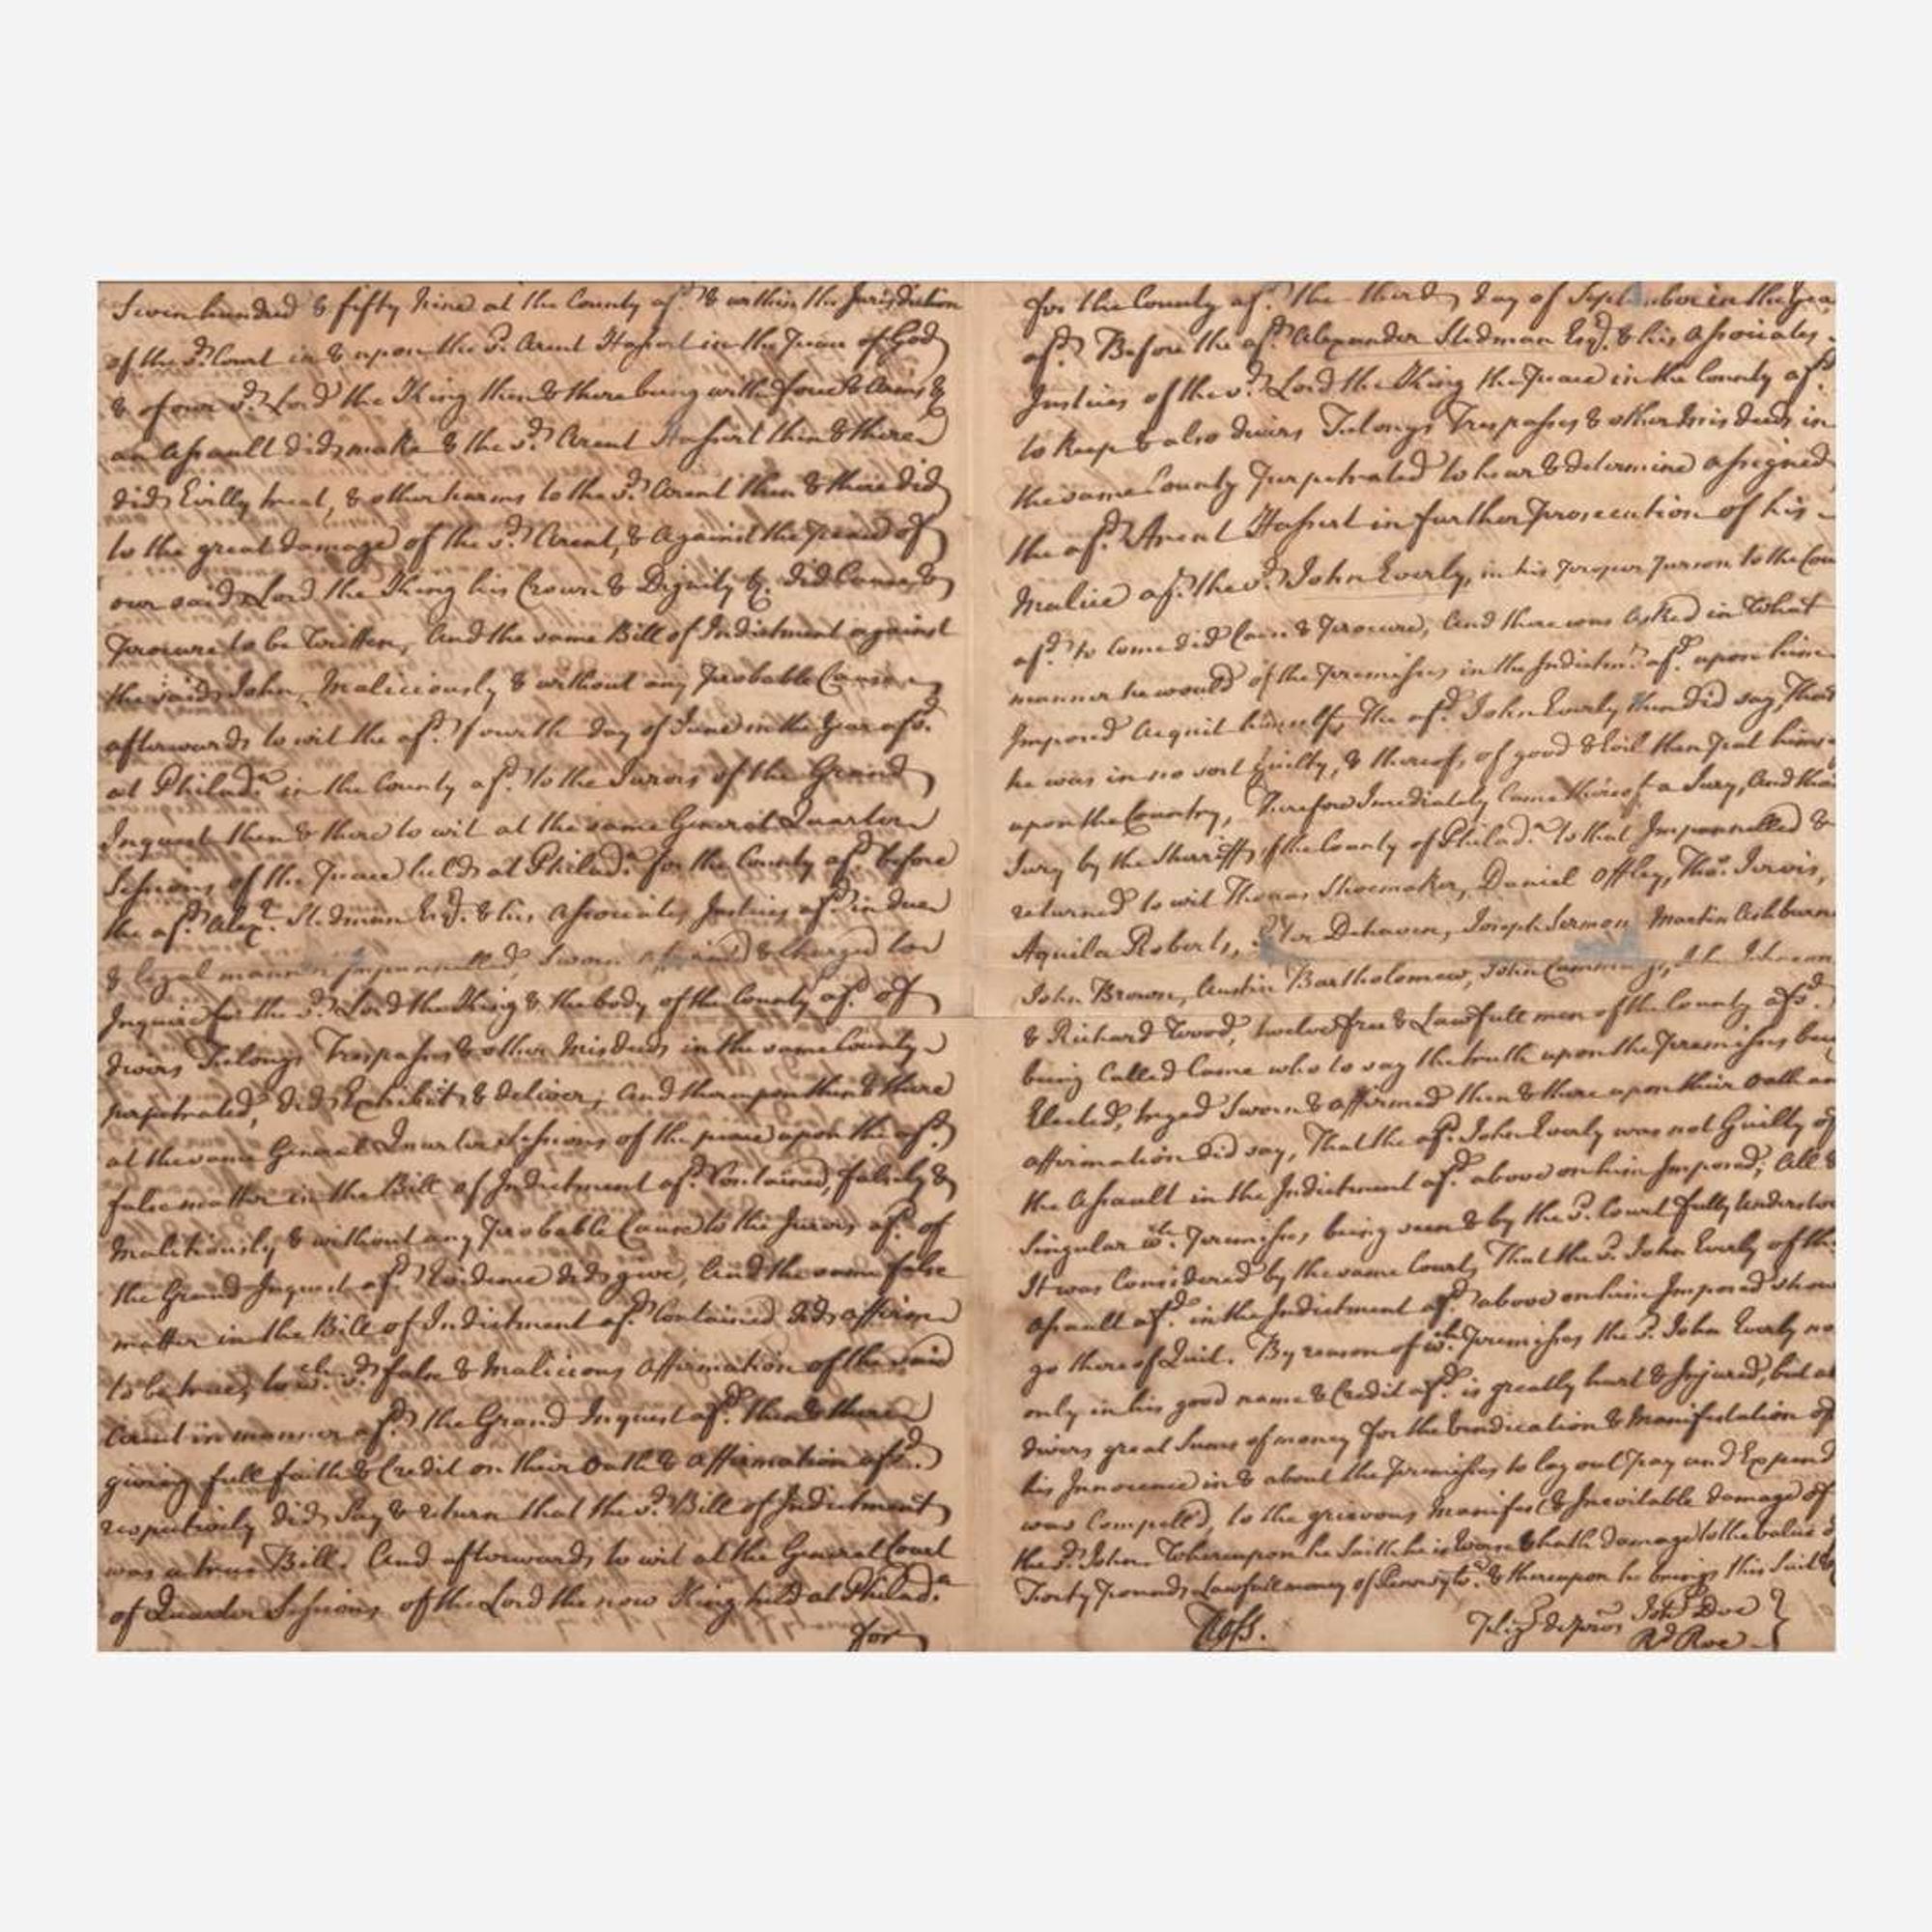 Seven hundred & fifty Nine at the County afd. & within the Jurisdiction
of the sd. Court in & upon the sd. Arent Hassert in the Peace of God
& of our sd. Lord the King then & there being with force & Arms &c
an Assault did make & the sd. Arent Hassert then & there
did Evilly treat, & other harms to the sd. Arent then & there did
to the great damage of the sd. Arent, & Against the Peace of
our said Lord the King his Crown & Dignity &c. did Cause &
Procure to be Written, And the same Bill of Indictment against
the said John, Maliciously & without any Probable Cause
afterwards to wit the afd. fourth day of June in the Year afsd.
at Philada. in the County afd. to the Jurors of the Grand
Inquest then & there to wit at the same General Quarter
Sessions of the Peace held at Philada. for the County afd. before
the afd. Alexr. Stedman Esqr. & his Associates Justices afd. in due
& legal manner Impannelled, Sworn affirmed & charged to
Inquire for the sd. Lord the King & the body of the County afd. of
divers Felonys Trespasses & other Misdeeds in the same County
perpetrated, did Exhibit & deliver, And thereupon then & there
at the same General Quarter Sessions of the peace upon the afd.
false matter in the Bill of Indictment afd. Contained, falsely &
Malitiously & without any Probable Cause to the Jurors afd. of
the Grand Inquest afd. Evidence did give, And the same false
matter in the Bill of Indictment afd. Contained did affirm
to be true, to wch. sd. false & Malicious Affirmation of the said
Arent in manner afd. the Grand Inquest afd. then & there
giving full faith & Credit on their Oath & Affirmation afsd.
respectively did Say & return that the sd. Bill of Indictment
was a true Bill. And afterwards to wit at the General Court
of Quarter Sessions of the Lord the now King held at Philada.
for
for the County afd. the third day of September in the Yea
afd. Before the afd. Alexander Stedman Esqr. & his Associates
Justices of the sd. Lord the King the Peace in the County afd.
to keep & also divers Felonys Trespasses & other Misdeeds in
the same County Perpetrated to hear & determine assigned
the afd. Arent Hassert in further Prosecution of his
Malice afd. the sd. John Everly, in his proper Person to the Cou
afd. to come did Cause & Procure, And there was Asked in What
manner he would of the Premisses in the Indictmt. afd. upon him
Imposed Acquit himself, The afd. John Everly then did say, That
he was in no sort Guilty, & thereof, of good & Evil then Put himse
upon the Country, Therefore Imediately Come thereof a Jury, And tha
Jury by the Sherriff of the County of Philada. to that Impannelled &
returned to wit Thomas Shoemaker, Daniel Offley, Thos. Jervis,
Aquila Roberts, Peter Dehaven, Joseph Sermon Martin Ashburn
John Brown, Austin Bartholomew, John Cummings, John Johnson
& Richard Wood, twelve free & Lawfull men of the County afsd.
being Called Came who to say the truth upon the Premisses bei
Elected, tryed Sworn & affirmed then & there upon their Oath an
affirmation did say, That the afd. John Everly was not Guilty of
the Assault in the Indictment afd. above on him Imposed, All &
Singular wch. Premisses, being seen & by the sd. Court fully Understoo
It was Considered by the same Court, That the sd. John Everly of the
Assault afd. in the Indictment afd. above on him Imposed shou
go thereof Quit. By reason of wch. Premisses the sd. John Everly no
only in his good name & Credit afd. is greatly hurt & Injured, but al
divers great Sums of money for the Vindication & Manifestation of
his Innocence in & about the Premisses to lay out Pay and Expend
was Compell'd, to the grievous Manifest & Inevitable damage of
the sd. John. Whereupon he Saith he is Worse & hath Damage to the value o
Forty Pounds Lawfull money of Pennsylva. & thereupon he brings this Suit &c
Ross.
Pleg de pros Jon. Doe
Rd. Roe